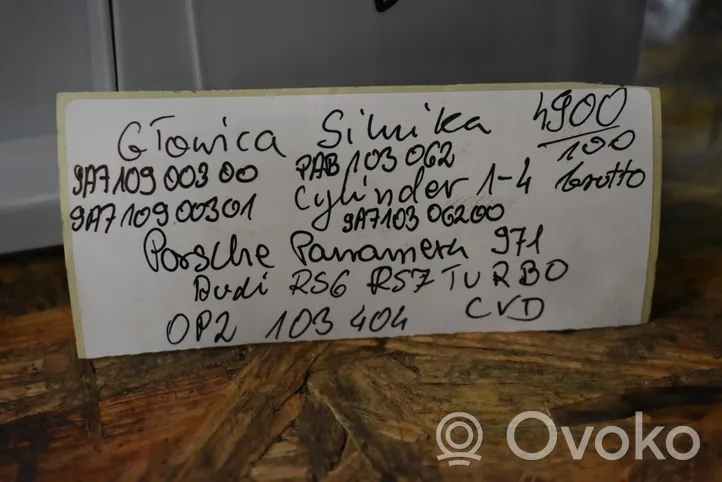 Głowica Silnika 4900/100
9A710900300 PAB103062
9A710900301 Cylinder 1-4 brutto
9A710306200
Porsche Panamera 971
Audi RS6 RS7 TURBO
0P2 103 404 CVD
Ovoko